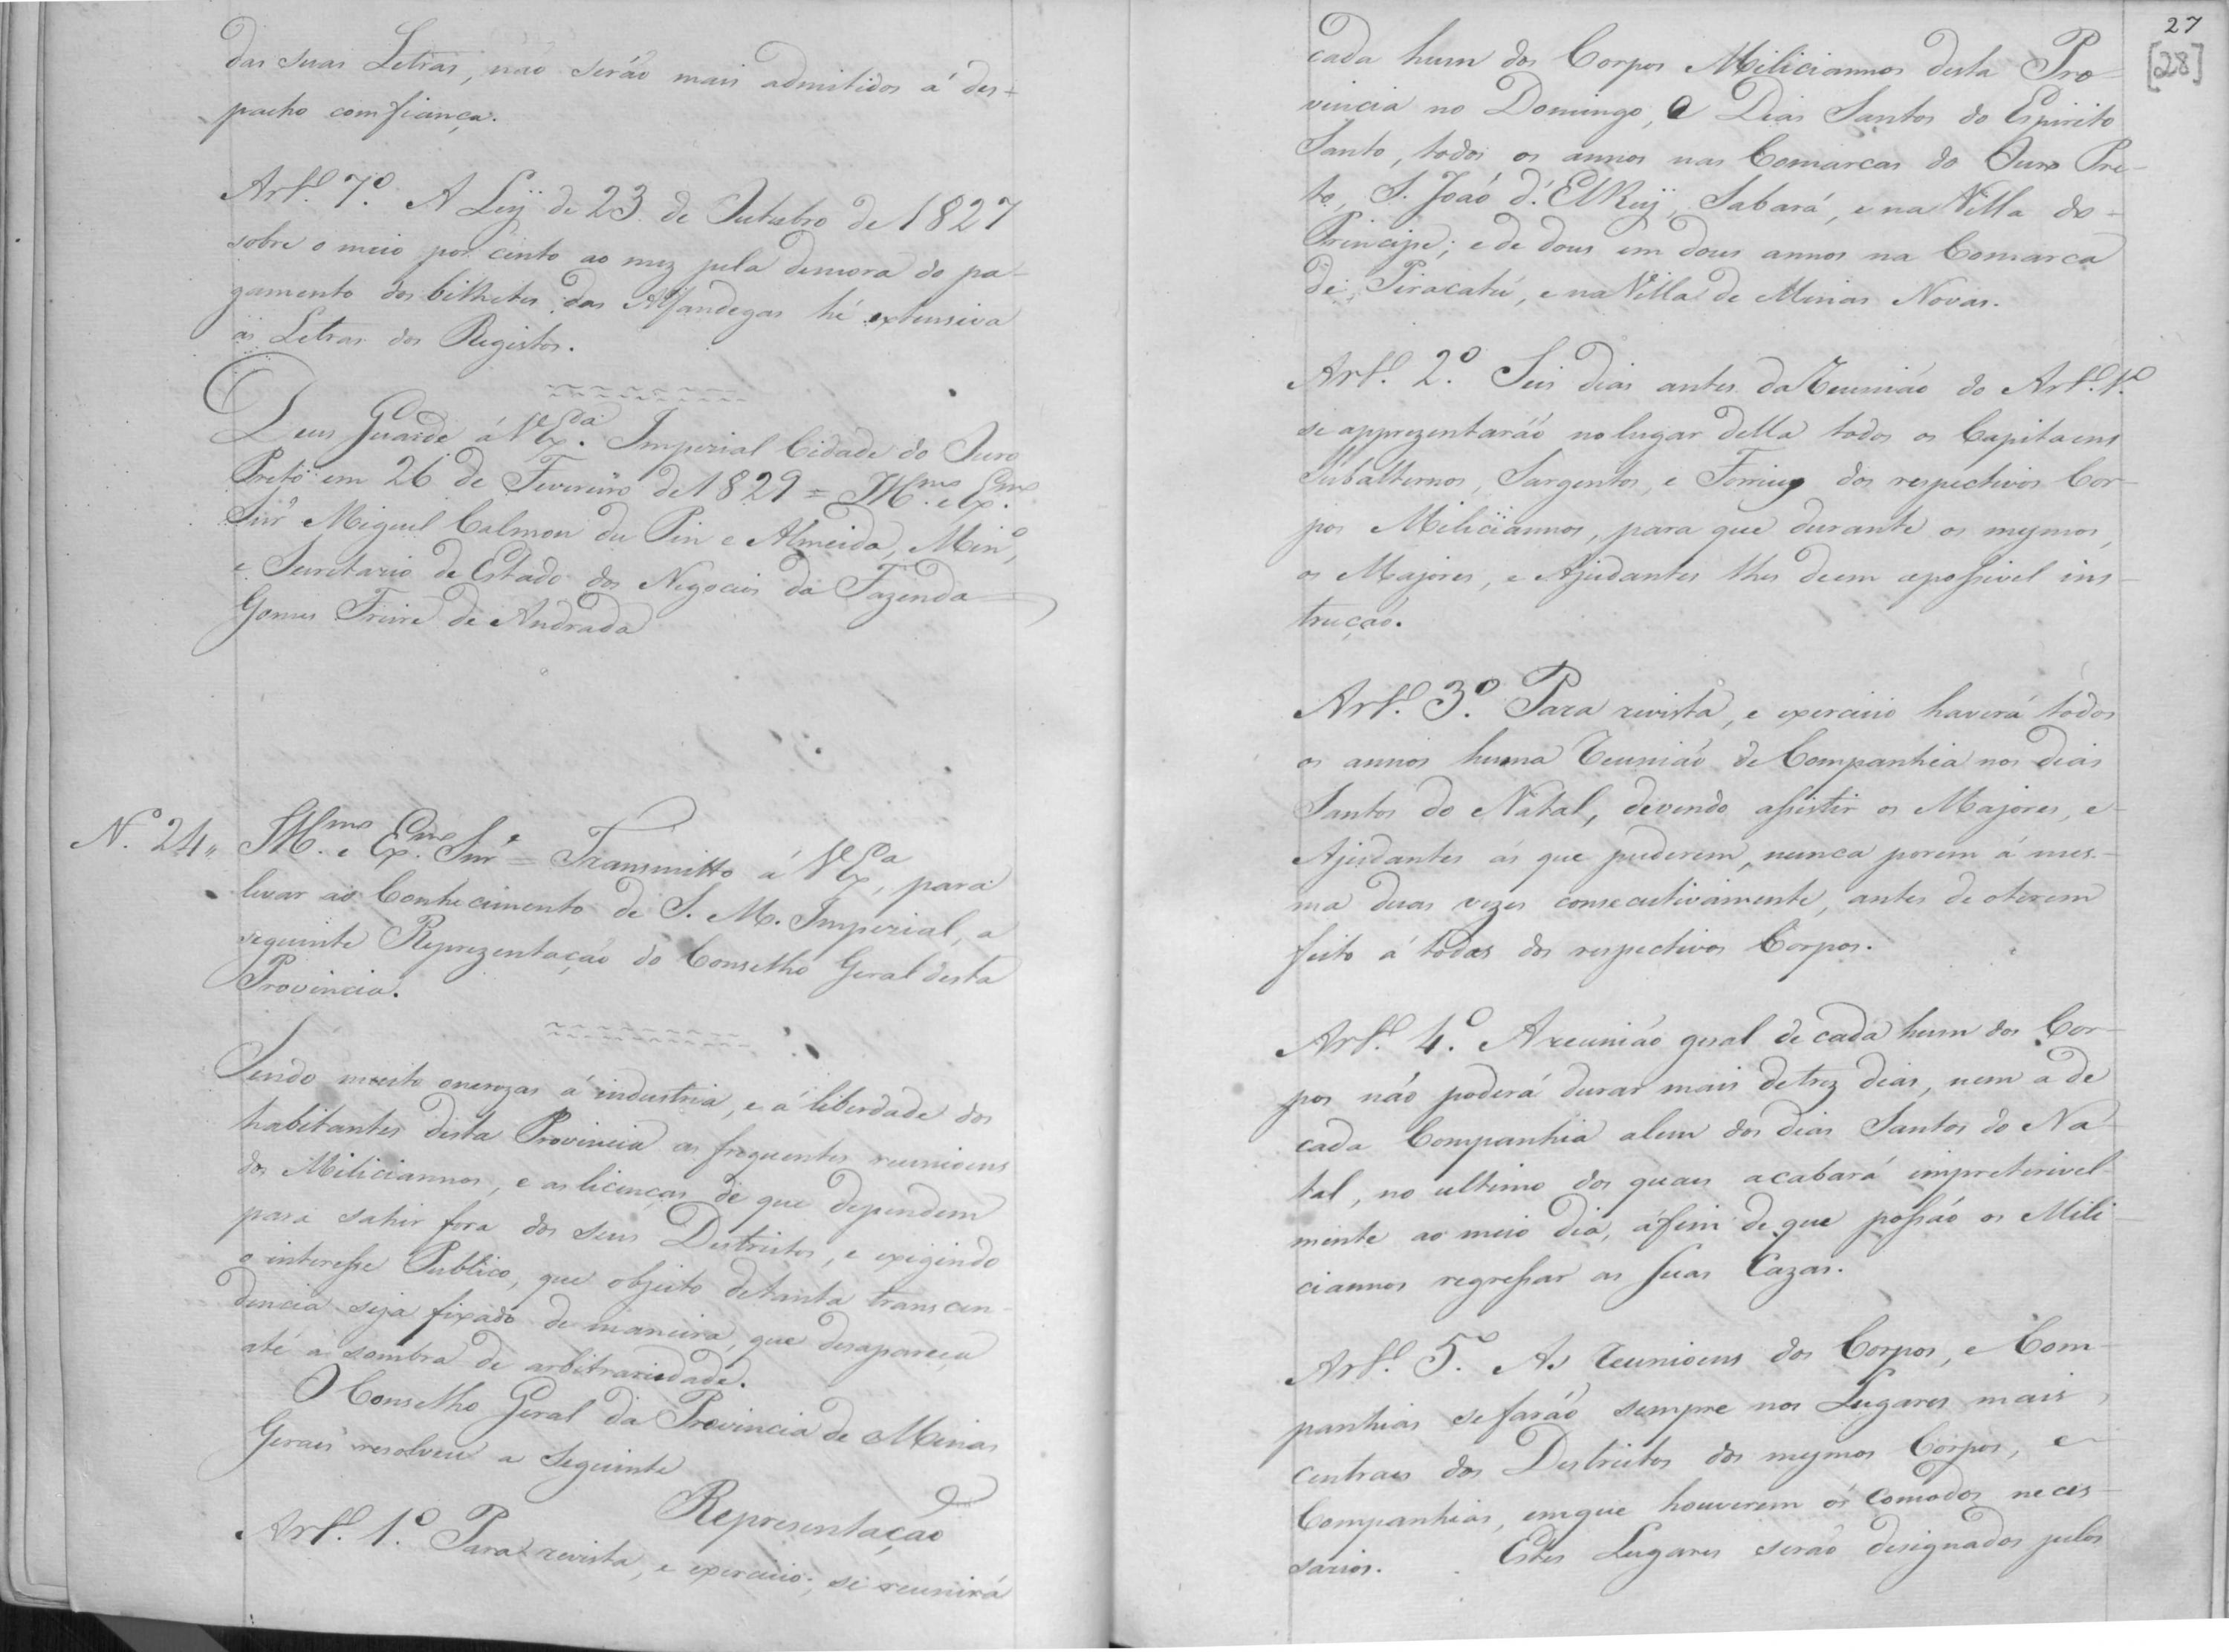 das suas Letras, não serão mais admitidos á des-
pacho comfiança.
Art.º 7.º A Ley de 23 de Outubro de 1827
sobre o meio por cento ao mez pela demora do pa-
gamento dos bilhetes das Alfandegas hé extensiva
ás Letras dos Registos.
Deos Guarde á V.Ex.cia Imperial Cidade do Ouro
Preto em 26 de Fevereiro de 1829 = Ill.mo e Ex.mo
Snr.º Miguel Calmon du Pin e Almeida, Min.º,
e Secretario de Estado dos Negocios da Fazenda
Gomes Freire de Andrada
N.º 24,, Ill.mo e Ex.mo Snr.e = Transmitto á V.Ex.a, para
levar ao Conhecimento de S. M. Imperial, a
seguinte Reprezentação do Conselho Geral desta
Provincia.
Sendo muito onerozas á industria, e á liberdade dos
habitantes desta Provincia as frequentes reunioens
dos Miliciannos, e as licenças de que dependem
para sahir fora dos seus Destrictos, e exigindo
o interesse Publico, que objecto detanta transcen-
dencia seja fixado de maneira, que desapareça
até a sombra de arbitrariedade.
O Conselho Geral da Provincia de Minas
Geraes resolveu a Seguinte
Representação
Art.º 1.º Para revista, e exercicio, se reunirá
27
[28]
cada hum dos Corpos Miliciannos desta Pro-
vincia no Domingo, e Dias Santos do Espirito
Santo, todos os annos nas Comarcas do Ouro Pre-
to, S. João d'ElRey, Sabará, e na Villa do
Principe; e de dous em dous annos na Comarca
de Piracatú, e na Villa de Minas Novas.
Art.º 2.º Seis dias antes da Reunião do Art.º 1.º
se apprezentarão no lugar della todos os Capitaens
Subalternos, Sargentos, e Forrieis dos respectivos Cor-
pos Miliciannos, para que durante os mesmos,
os Majores, e Ajudantes lhes deem apossivel ins-
trução.
Art.º 3.º Para revista, e exercicio haverá todos
os annos huma Reunião de Companhia nos dias
Santos do Natal, devendo assistir os Majores, e
Ajudantes ás que puderem, nunca porem á mes-
ma duas vezes consecutivamente, antes de oterem
feito á todas dos respectivos Corpos.
Art.º 4.º Areunião geral de cada hum dos Cor-
pos não poderá durar mais detrez dias, nem a de
cada Companhia alem dos dias Santos do Na-
tal, no ultimo dos quaes acabará impreterivel-
mente ao meio dia, áfim de que possão os Mili-
ciannos regressar as suas Cazas.
Art.º 5.º As Reunioens dos Corpos, e Com-
panhias sefarão sempre nos Lugares mais
centraes dos Destrictos dos mesmos Corpos, e
Companhias, emque houverem os comodos neces-
sarios. Estes Lugares serão designados pelos